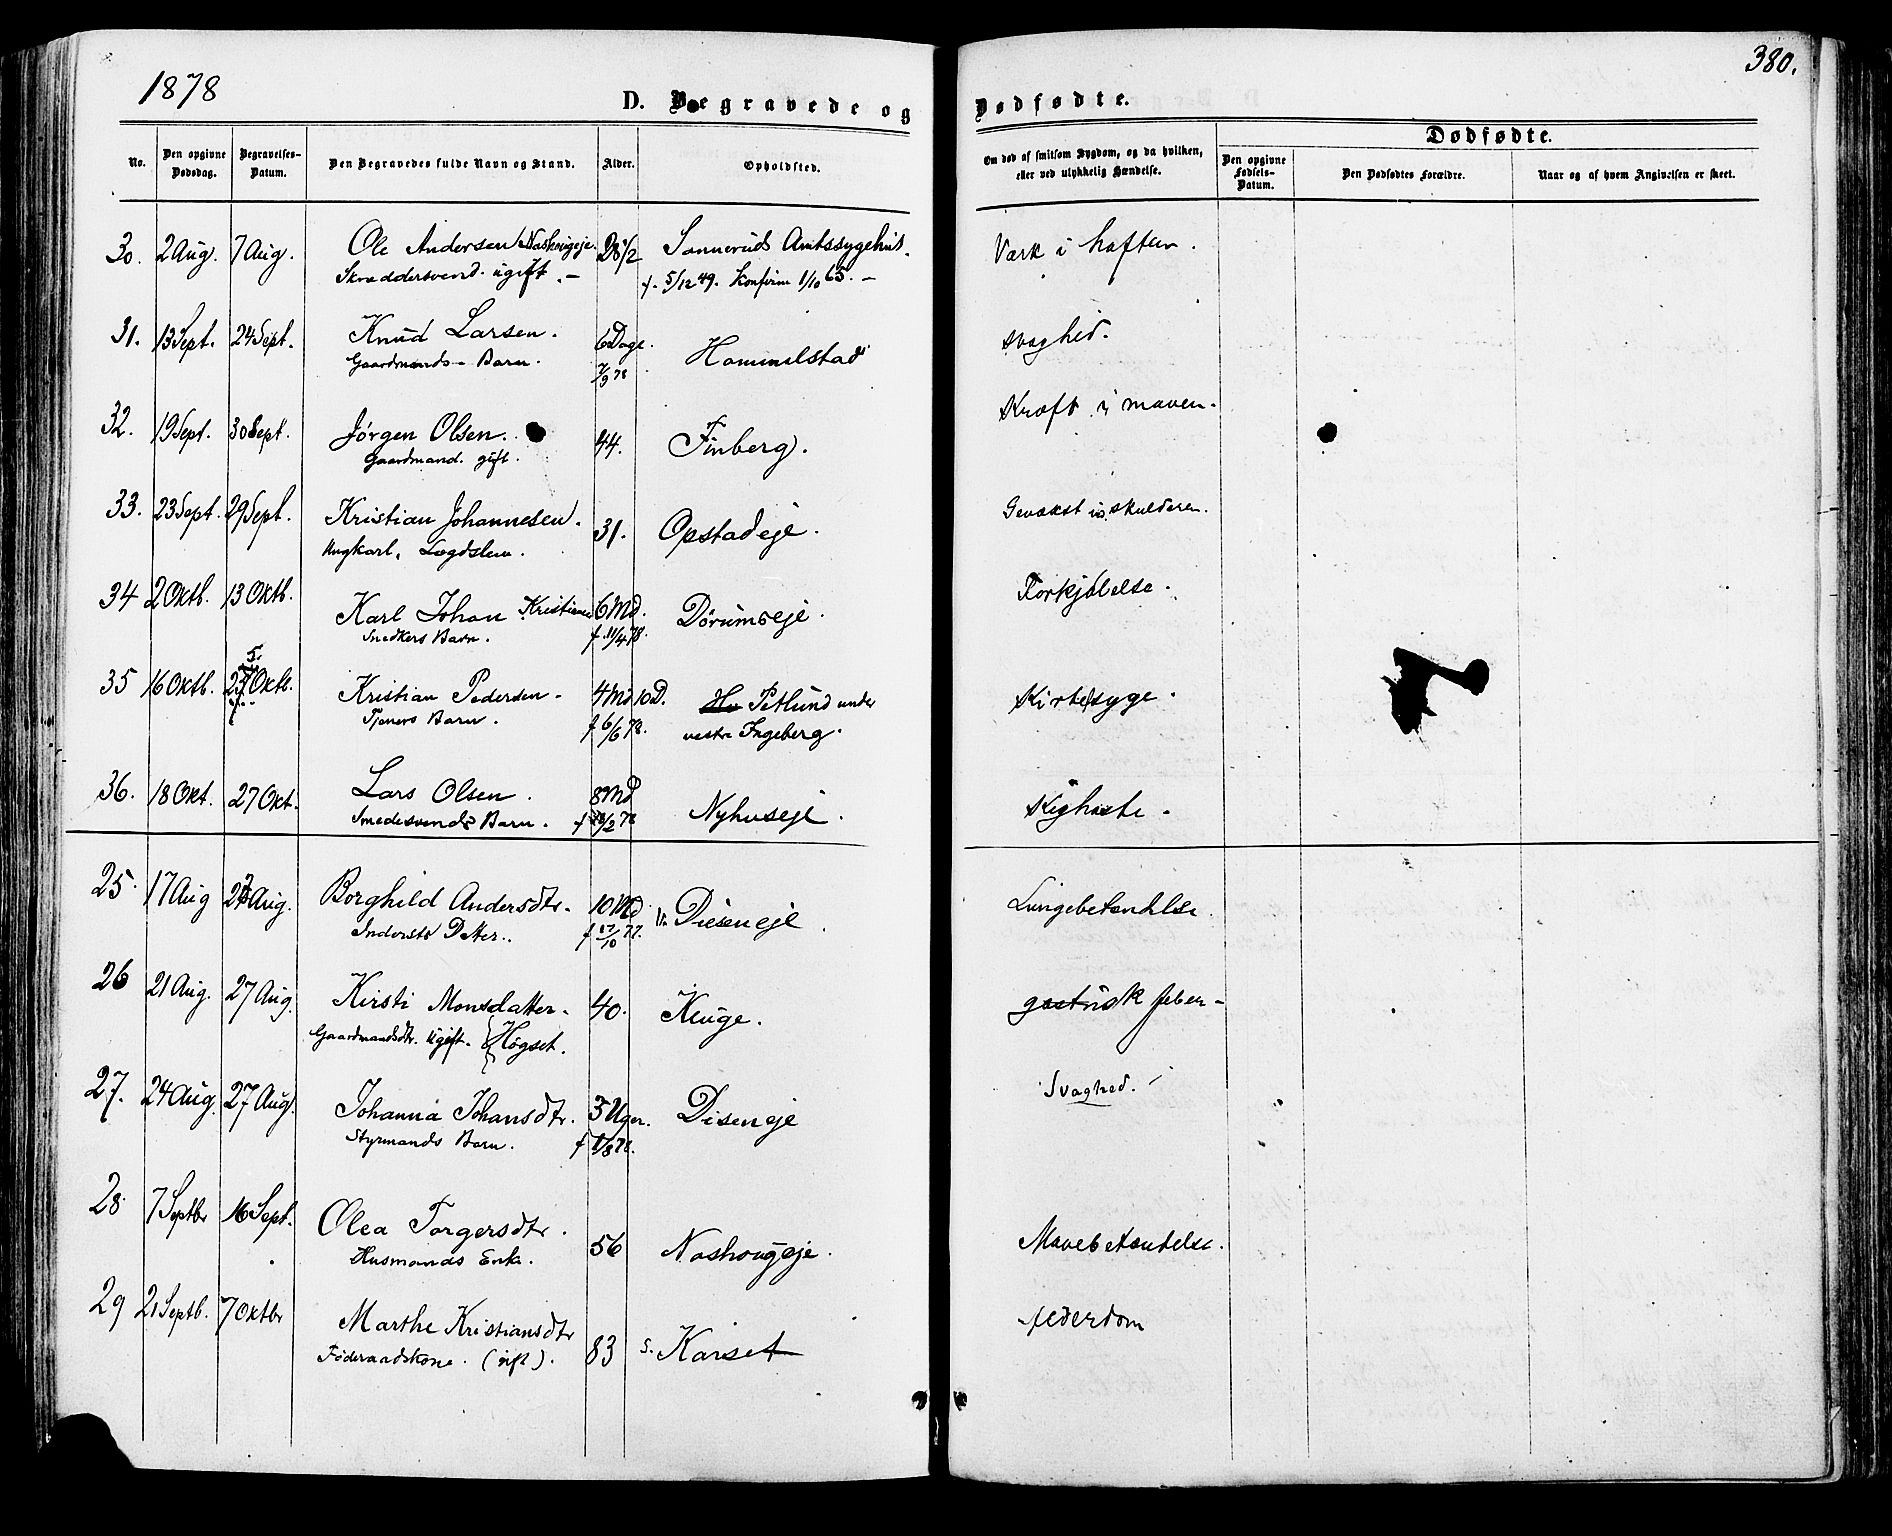 1878
380.
D. Begravede og Dødfødte.
Dødfødte.
No. Den opgivne Dødsdag. Begravelses-Datum. Den Begravedes fulde Navn og Stand. Alder. Opholdsted. Om død af smitsom Sygdom, og da hvilken, eller ved ulykkelig Hændelse. Den opgivne Fødsels-Datum. Den Dødfødtes Forældre. Naar og af hvem Angivelsen er skeet.
30. 2 Aug. 7 Aug. Ole Andersen Nashougeje. 28 1/2 Sanneruds Amtssygehus. Værk i hoften.
Skræddersvend. ugift. — f. 5/12 49. Konfirm 1/10 65. —
31. 13 Sept. 24 Sept. Knud Larsen. 6 Dage. Hommelstad svaghed.
Gaardmands- Barn. 7/9 78
32. 19 Sept. 30 Sept. Jørgen Olsen. 44. Finberg. Kræft i maven.
Gaardmand. gift.
33. 23 Sept. 29 Sept. Kristian Johannesen. 31. Opstadeje. Gevæxst i skulderen.
Ungkarl, Lægdslem.
34 2 Oktb. 13 Oktb. Karl Johan Kristians 6 Md. Dørumseje. Forkjølelse.
Snedkers Barn. f. 11/4 78.
35 16 Oktb. Oktb. Kristian Pedersen 4 Md 10 D. Petlund under Kirtelsyge.
Tjeners Barn. f 6/6 78. vestre Ingeberg.
36. 18 Okt. 27 Okt. Lars Olsen. 8 Md Nyhuseje. Kighoste.
Smedesvends Barn. f /2 78
25. 17 Aug Aug. Borghild Andersdtr. 10 Md V. Diseneje Lungebetændelse.
Inderste Datter. f 17/10 77.
26 21 Aug. 27 Aug. Kirsti Monsdatter. 40. Kluge. gastrisk feber
Gaardmandsdtr. Ugift. Høgset.
27. 24 Aug. 27 Aug. Johanna Johansdtr. 3 Uger. Diseneje Svaghed.
Styrmands Barn. f 1/8 78.
28. 7 Septbr 16 Sept. Olea Torgersdtr. 56 Nashougeje. Mavebetændelse.
Husmands Enke.
29 21 Septb. 7 Oktbr Marthe Kristiansdtr 83 S. Karset Alderdom
Føderaadskone. (gift).